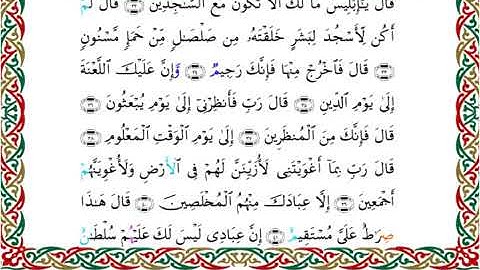 قَالَ يَٰٓإِبْلِيسُ مَا لَكَ أَلَّا تَكُونَ مَعَ ٱلسَّٰجِدِينَ ﴿٣٢﴾ قَالَ لَمْ
أَكُن لِّأَسْجُدَ لِبَشَرٍ خَلَقْتَهُۥ مِن صَلْصَٰلٍ مِّنْ حَمَإٍ مَّسْنُونٍ
﴿٣٣﴾ قَالَ فَٱخْرُجْ مِنْهَا فَإِنَّكَ رَجِيمٌ ﴿٣٤﴾ وَإِنَّ عَلَيْكَ ٱللَّعْنَةَ
إِلَىٰ يَوْمِ ٱلدِّينِ ﴿٣٥﴾ قَالَ رَبِّ فَأَنظِرْنِىٓ إِلَىٰ يَوْمِ يُبْعَثُونَ ﴿٣٦﴾
قَالَ فَإِنَّكَ مِنَ ٱلْمُنظَرِينَ ﴿٣٧﴾ إِلَىٰ يَوْمِ ٱلْوَقْتِ ٱلْمَعْلُومِ ﴿٣٨﴾
قَالَ رَبِّ بِمَآ أَغْوَيْتَنِى لَأُزَيِّنَنَّ لَهُمْ فِى ٱلْأَرْضِ وَلَأُغْوِيَنَّهُمْ
أَجْمَعِينَ ﴿٣٩﴾ إِلَّا عِبَادَكَ مِنْهُمُ ٱلْمُخْلَصِينَ ﴿٤٠﴾ قَالَ هَٰذَا
صِرَٰطٌ عَلَىَّ مُسْتَقِيمٌ ﴿٤١﴾ إِنَّ عِبَادِى لَيْسَ لَكَ عَلَيْهِمْ سُلْطَٰنٌ